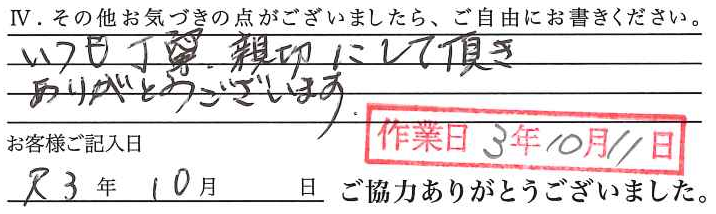 Ⅳ．その他お気づきの点がございましたら、ご自由にお書きください。
いつも丁寧、親切にして頂き
ありがとうございます．
お客様ご記入日
作業日 3年10月11日
R3年 10月 日 ご協力ありがとうございました。